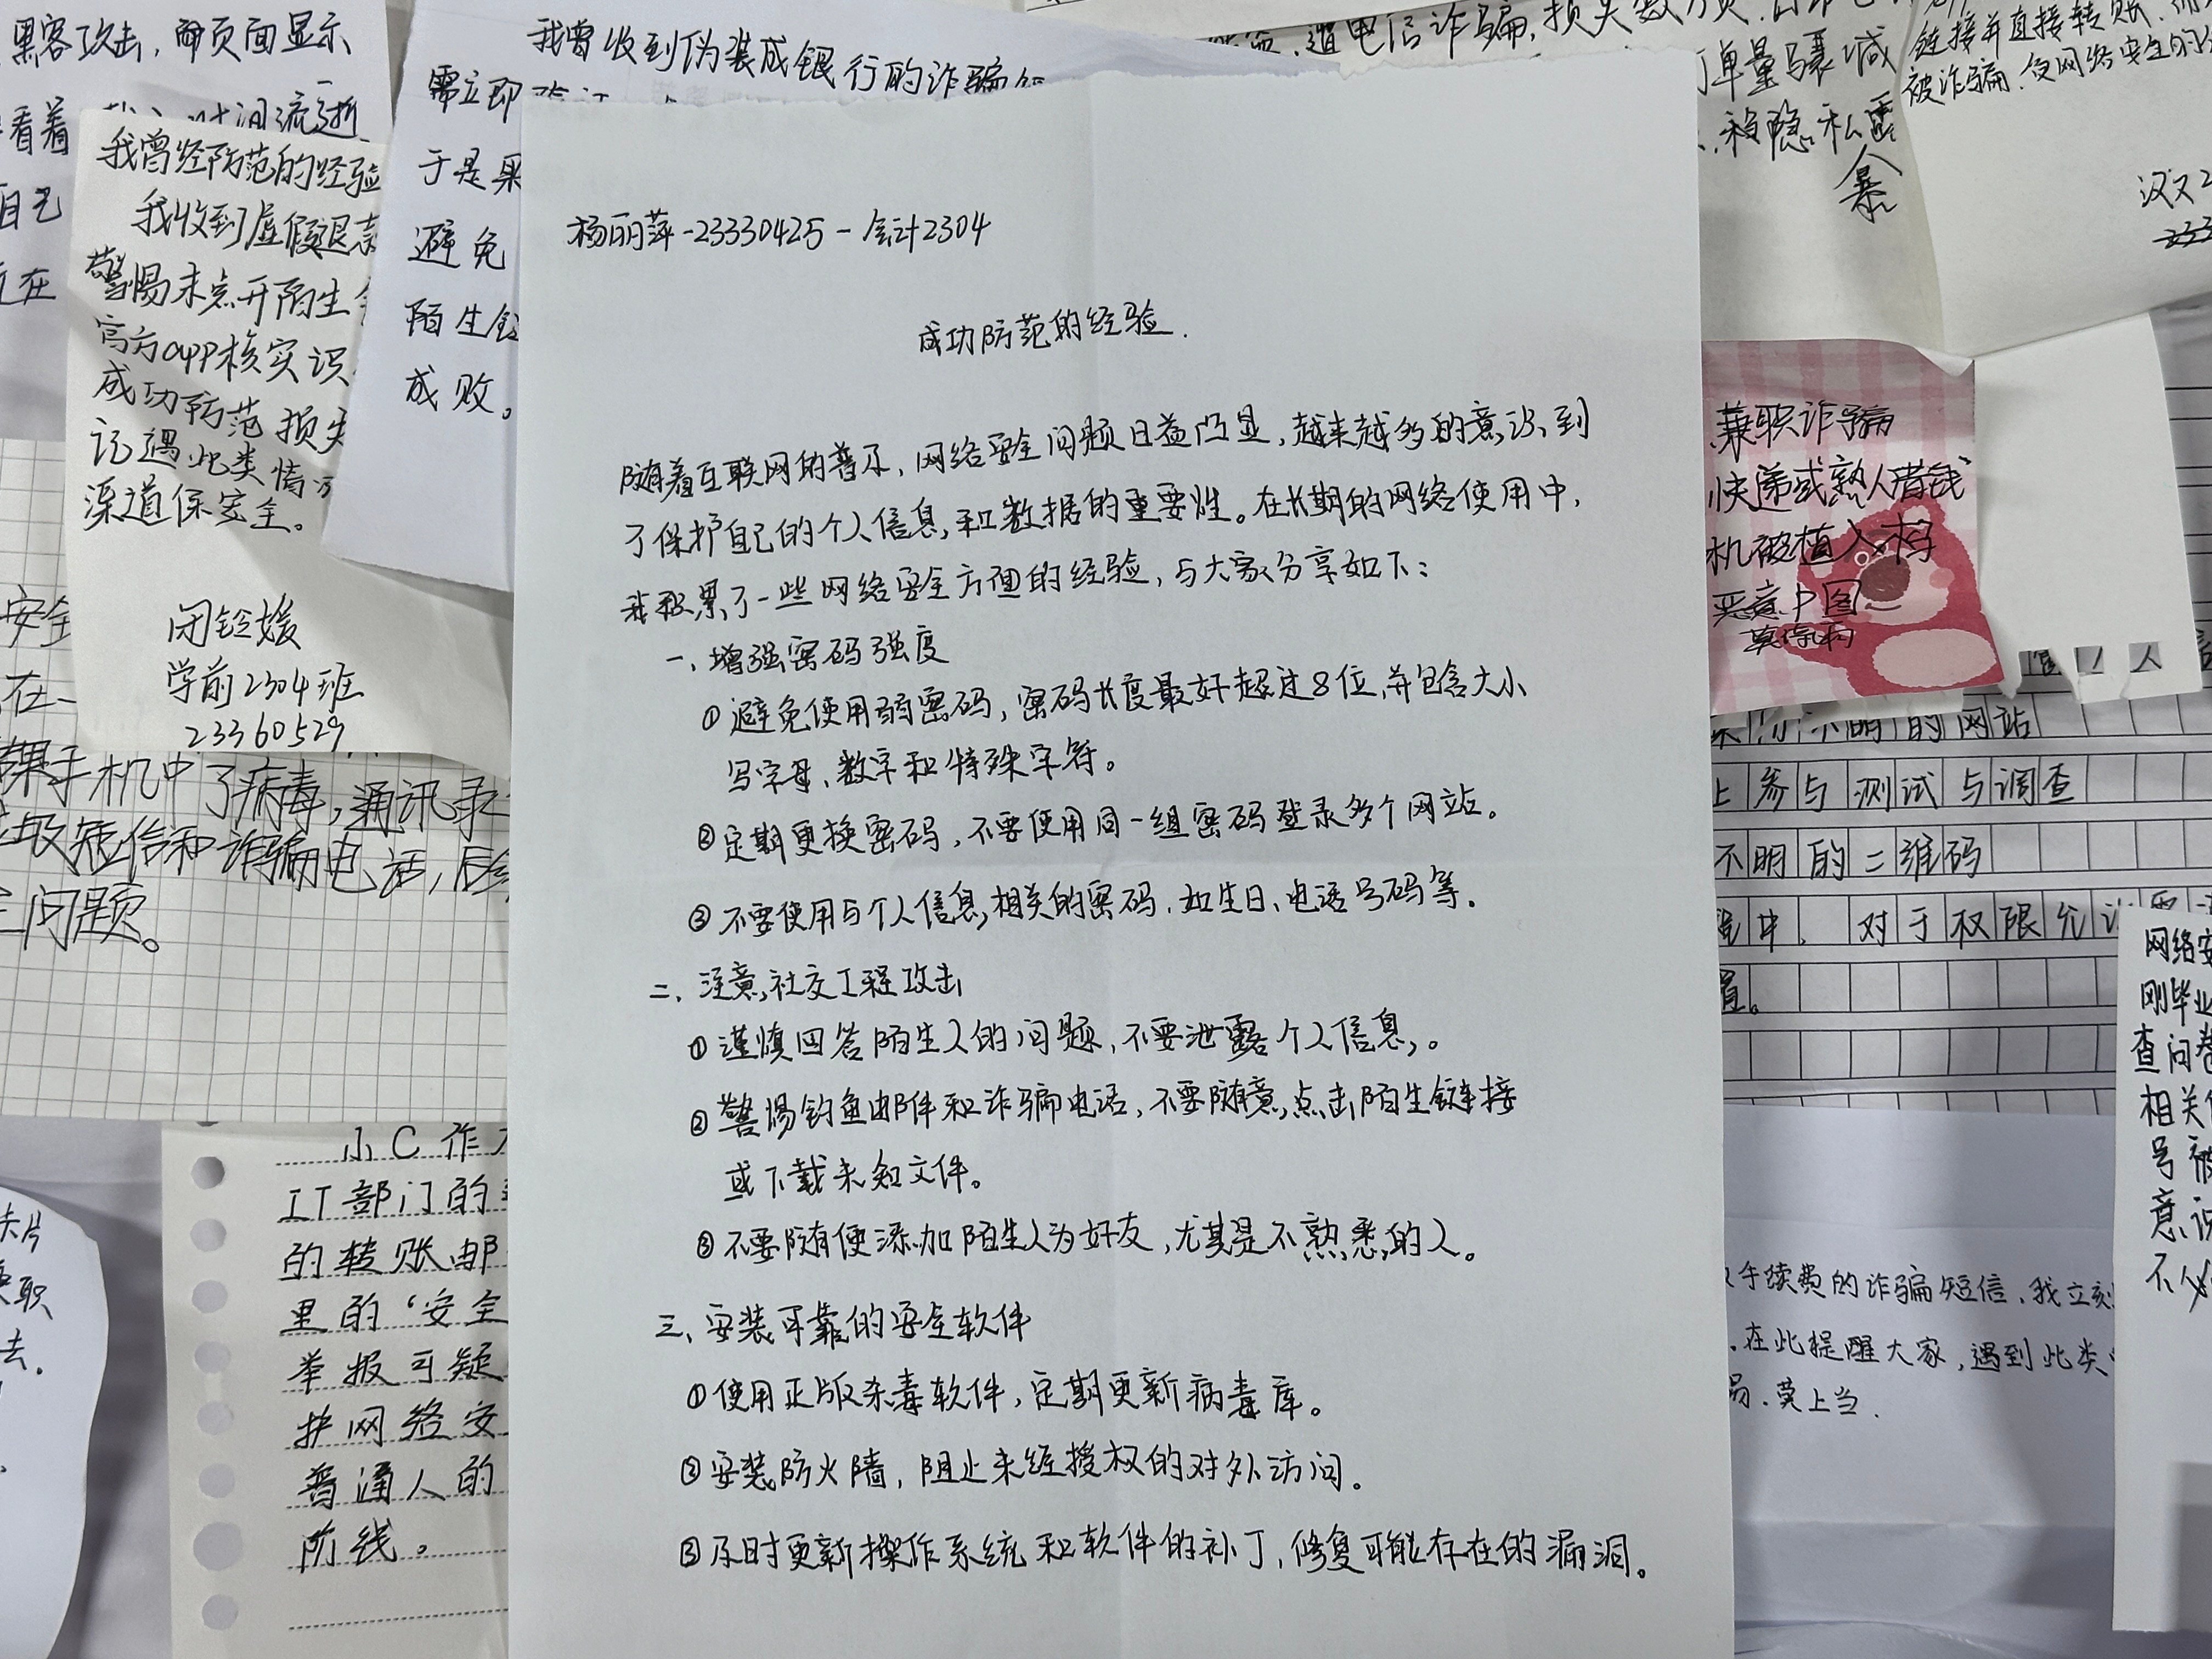 杨丽萍-23330425-会计2304
成功防范的经验.
随着互联网的普及,网络安全问题日益凸显,越来越多的意识到
了保护自己的个人信息和数据的重要性。在长期的网络使用中,
我积累了一些网络安全方便的经验,与大家分享如下:
一、增强密码强度
①避免使用弱密码,密码长度最好超过8位,并包含大小
写字母、数字和特殊字符。
②定期更换密码,不要使用同一组密码登录多个网站。
③不要使用与个人信息相关的密码,如生日、电话号码等.
二、注意社交工程攻击
①谨慎回答陌生人的问题,不要泄露个人信息。
②警惕钓鱼邮件和诈骗电话,不要随意点击陌生链接
或下载未知文件。
③不要随便添加陌生人为好友,尤其是不熟悉的人。
三、安装可靠的安全软件
①使用正版杀毒软件,定期更新病毒库。
②安装防火墙,阻止未经授权的对外访问。
③及时更新操作系统和软件的补丁,修复可能存在的漏洞。
黑客攻击,而页面显示
看着
时间流逝
自己
在
我曾经防范的经验
我收到虚假退款
警惕未点开陌生
官方app核实识
成功防范损失
记遇此类情况
渠道保安全。
闭铃媛
学前2304班
23360529
我曾收到伪装成银行的诈骗
需立即
于是果
避免
陌生链
成败。
遭电信诈骗,损失数万
单量骤减
私隐私露
暴
链接并直接转账
被诈骗.
汉文2
安全
在一
果手机中了病毒,通讯录
圾短信和诈骗电话,后
问题。
小C作
IT部门的
的转账邮
里的“安全
举报可疑
护网络安
普通人的
防线。
卡片
职
去.
兼职诈骗
快递或熟人借钱
机被植入木马
恶意P图
人
不明的网站
上参与测试与调查
不明的二维码
中.对于权限允
置。
网络安
刚毕业
查问卷
相关
号被
意识
不必
手续费的诈骗短信,我立刻
.在此提醒大家,遇到此类
易.莫上当.